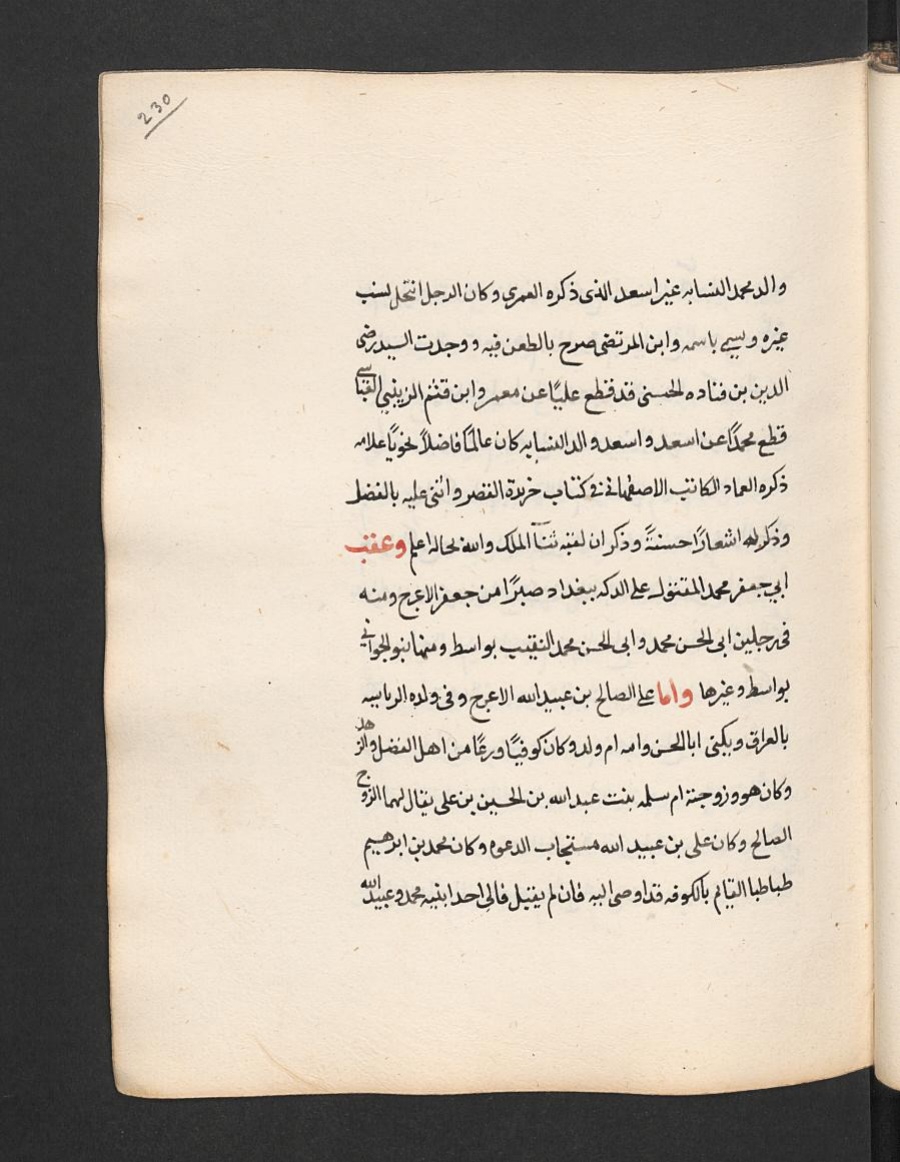 230
والد محمد النسابه غير اسعد الذى ذكره العمري وكان الرجل انتحل نسب
غيره ويسمى باسمه وابن المرتضى صرح بالطعن فيه ووجدت السيد رضى
الدين بن قتاده الحسنى قد قطع عليًا عن معمر وابن قثم الزينبي العباسي
قطع محمدًا عن اسعد واسعد والد النسابه كان عالمًا فاضلاً نحويًا علامه
ذكره العماد الكاتب الاصفهانى فى كتاب خريدة القصر واثنى عليه بالفضل
وذكر له اشعارًا حسنةً وذكر ان لقبه ثنآ الملك والله بحاله اعلم وعقب
ابي جعفر محمد المقتول على الدكه ببغداد صبرًا من جعفر الاعرج ومنه
فى رجلين ابى الحسن محمد وابى الحسن محمد النقيب بواسط ومنهما بنو الجوانى
بواسط وغيرها واما على الصالح بن عبيد الله الاعرج وفى ولده الرياسه
بالعراق ويكنى ابا الحسن وامه ام ولد وكان كوفيًا ورعًا من اهل الفضل والزهد
وكان هو وزوجته ام سلمه بنت عبد الله بن الحسين بن على يقال لهما الزوج
الصالح وكان على بن عبيد الله مستجاب الدعوه وكان محمد بن ابرهيم
طباطبا القايم بالكوفه قد اوصى اليه فان لم يقبل فالى احد ابنيه محمد وعبيد الله